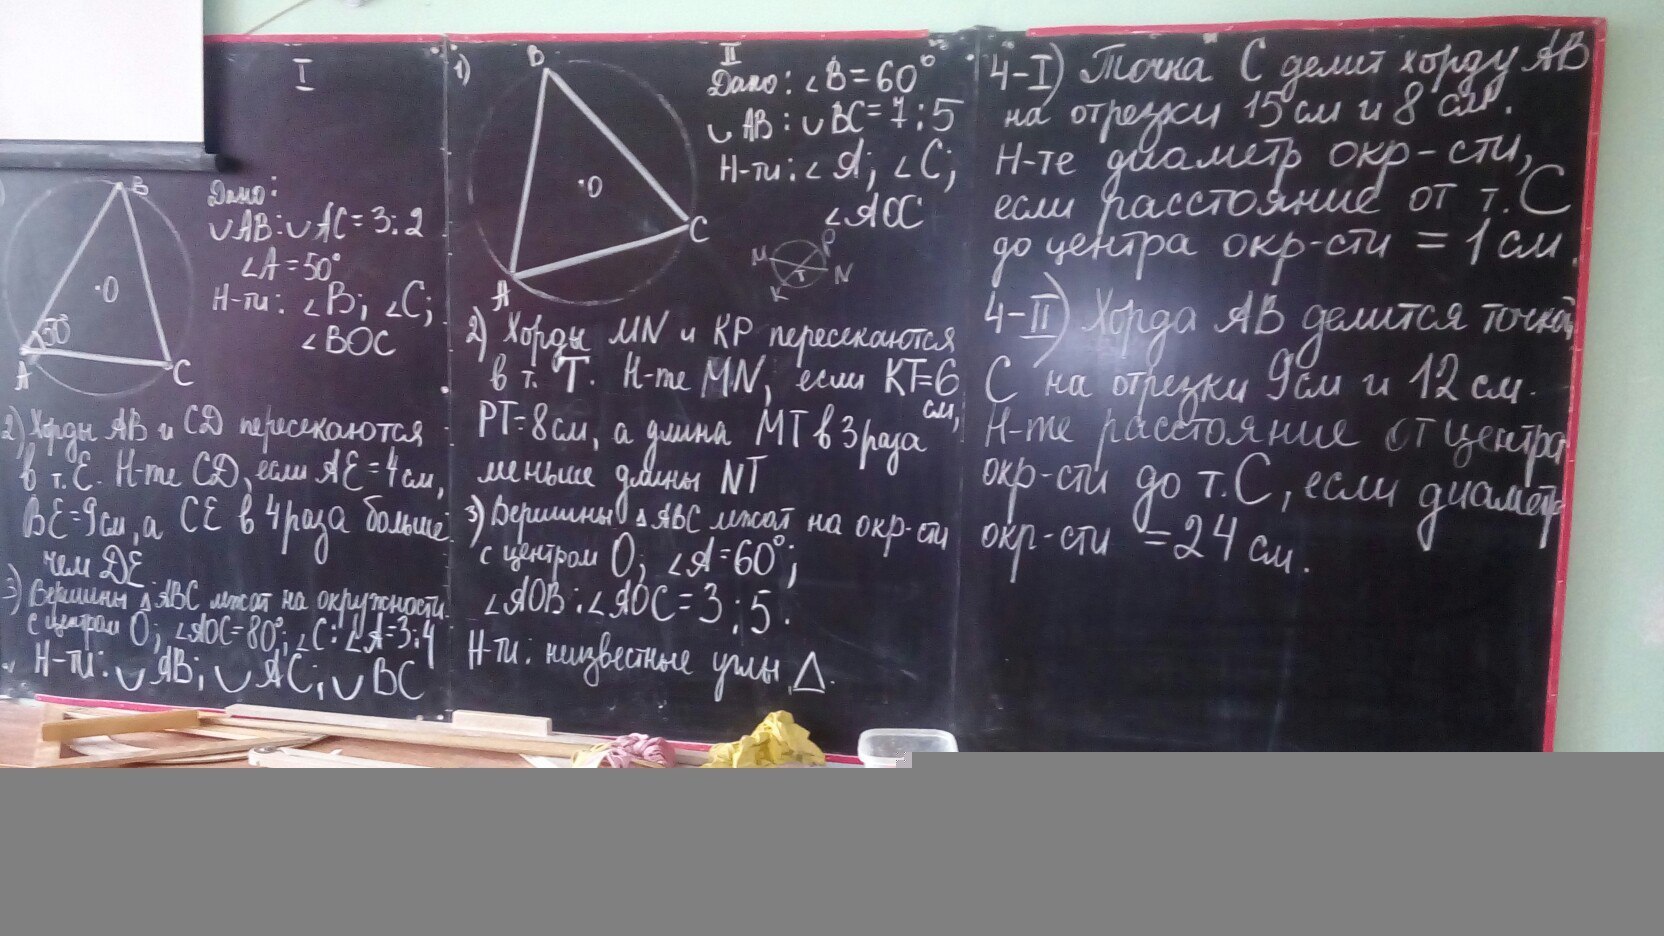 I
B
O
50°
A
C
Дано:
∪AB:∪AC=3:2
∠A=50°
Н-ти: ∠B; ∠C;
∠BOC
2) Хорды AB и CD пересекаются
в т. E. Н-те CD, если AE=4см,
BE=9см, а CE в 4 раза больше
чем DE
3) Вершины △ABC лежат на окружности
с центром O; ∠AOC=80°; ∠C:∠A=3:4
Н-ти: ∪AB; ∪AC; ∪BC
II
1)
B
O
C
A
Дано: ∠B=60°
∪AB:∪BC=7:5
Н-ти: ∠A; ∠C;
∠AOC
M
P
N
K
T
2) Хорды MN и KP пересекаются
в т. T. Н-те MN, если KT=6
см,
PT=8см, а длина MT в 3 раза
меньше длины NT
3) Вершины △ABC лежат на окр-сти
с центром O; ∠A=60°;
∠AOB:∠AOC=3:5.
Н-ти: неизвестные углы △.
4-I) Точка C делит хорду AB
на отрезки 15см и 8 см.
Н-те диаметр окр-сти,
если расстояние от т. C
до центра окр-сти = 1 см.
4-II) Хорда AB делится точкой
C на отрезки 9см и 12 см.
Н-те расстояние от центра
окр-сти до т. C, если диаметр
окр-сти = 24 см.